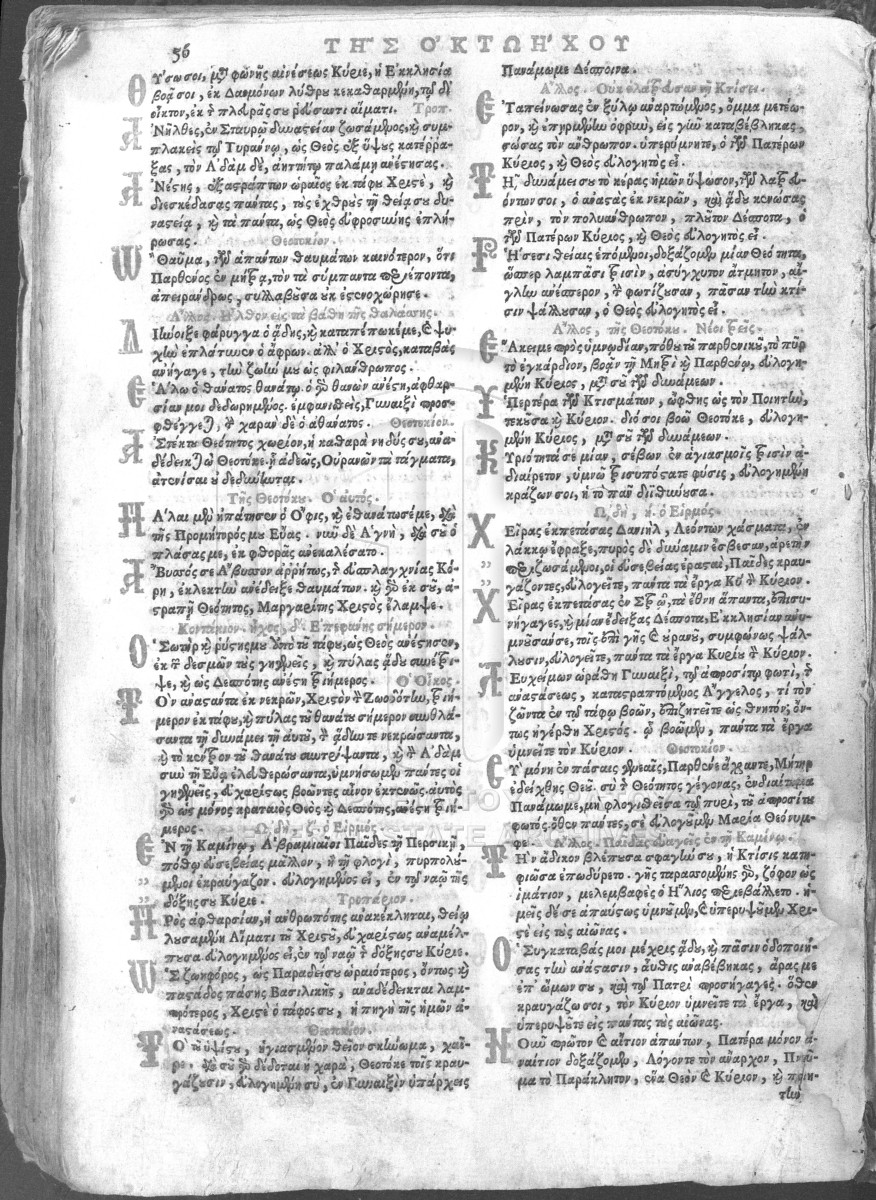 56
ΤΗΣ ΟΚΤΩΗΧΟΥ
Θύσω σοι, μετὰ φωνῆς αἰνέσεως Κύριε, ἡ Ἐκκλησία
βοᾷ σοι, ἐκ Δαιμόνων λύθρου κεκαθαρμένη, τῷ δι'
οἶκτον, ἐκ τῆς πλευρᾶς σου ῥεύσαντι αἵματι. Τροπ.
Ἀνῆλθες, ἐν Σταυρῷ δυναστείαν ζωσάμενος, καὶ συμ-
πλακεὶς τῷ Τυράννῳ, ὡς Θεὸς ἐξ ὕψους κατέρρα-
ξας, τὸν Ἀδὰμ δὲ, ἀηττήτῳ παλάμῃ ἀνέστησας.
Ἀνέστης, ἐξαστράπτων ὡραῖος ἐκ τάφου Χριστὲ, καὶ
διεσκέδασας πάντας, τοὺς ἐχθροὺς τῇ θείᾳ σου δυ-
ναστείᾳ, καὶ τὰ πάντα, ὡς Θεὸς εὐφροσύνης ἐπλή-
ρωσας. Θεοτοκίον.
Ὢ Θαῦμα, τῶν ἁπάντων θαυμάτων καινότερον, ὅτι
Παρθένος ἐν μήτρᾳ, τὸν τὰ σύμπαντα περιέποντα,
ἀπειράνδρως, συλλαβοῦσα οὐκ ἐστενοχώρησε.
Ἄλλος. Ἦλθον εἰς τὰ βάθη τῆς θαλάσσης.
Ἀνέῳξε φάρυγγα ὁ ᾅδης, καὶ καταπέπωκέ με, καὶ ψυ-
χὴν ἐπλάτυνεν ὁ ἄφρων. ἀλλ' ὁ Χριστὸς, καταβὰς
ἀνήγαγε, τὴν ζωήν μου ὡς φιλάνθρωπος.
Ἑάλω ὁ θάνατος θανάτῳ. ὁ γὰρ θανὼν ἀνέστη, ἀφθαρ-
σίαν μοι δεδωρημένος. ἐμφανισθεὶς, Γυναιξὶ προσ-
φθέγγεται, τὴν χαρὰν δὲ ὁ ἀθάνατος. Θεοτοκίον.
Ἄστεκτου Θεότητος χωρίον, ἡ καθαρὰ νηδύς σου, ἀνα-
δέδεικται ὦ Θεοτόκε. ᾗ ἀδεῶς, Οὐρανῶν τὰ τάγματα,
ἀτενίσαι οὐ δεδύνηνται.
Τῆς Θεοτόκου. Ὁ αὐτός.
Πάλαι μὲν ἠπάτησεν ὁ Ὄφις, καὶ ἐθανάτωσέ με, διὰ
τῆς Προμήτορός μου Εὔας. νῦν δὲ Ἁγνὴ, διὰ σοῦ ὁ
πλάσας με, ἐκ φθορᾶς ἀνεκαλέσατο.
Ἄβυσσός σε Ἄβυσσον ἀῤῥήτως, τῆς εὐσπλαγχνίας Κό-
ρη, ἐκλεκτὴν ἀνέδειξε θαυμάτων. καὶ γὰρ ἐκ σοῦ, ἀ-
στραπῇ Θεότητος, Μαργαρίτης Χριστὸς ἔλαμψε.
Κοντάκιον. ἦχος, δ. Ἐπεφάνης σήμερον.
Ὁ Σωτὴρ καὶ ῥύστης μου ἀπὸ τοῦ τάφου, ὡς Θεὸς ἀνέστησεν,
ἐκ τῶν δεσμῶν τοὺς γηγενεῖς, καὶ πύλας ᾅδου συνέτρι-
ψε, καὶ ὡς Δεσπότης ἀνέστη τριήμερος. Ὁ Οἶκος.
Τὸν ἀναστάντα ἐκ νεκρῶν, Χριστὸν τὸν Ζωοδότην, τριή-
μερον ἐκ τάφου, καὶ πύλας τοῦ θανάτου σήμερον συνθλά-
σαντα τῇ δυνάμει τῇ αὐτοῦ, τὸν ᾅδην τε νεκρώσαντα,
καὶ τὸ κέντρον τοῦ θανάτου συντρίψαντα, καὶ τὸν Ἀδὰμ
σὺν τῇ Εὔᾳ ἐλευθερώσαντα, ὑμνήσωμεν πάντες οἱ
γηγενεῖς, εὐχαρίστως βοῶντες αἶνον ἐκτενῶς. αὐτὸς
γὰρ ὡς μόνος κραταιὸς Θεὸς καὶ Δεσπότης, ἀνέστη τριή-
μερος. ᾨδὴ ζ. ὁ Εἱρμός.
Ἐν τῇ Καμίνῳ, Ἀβραμιαῖοι Παῖδες τῇ Περσικῇ,
πόθῳ εὐσεβείας μᾶλλον, ἢ τῇ φλογὶ, πυρπολού-
μενοι ἐκραύγαζον. εὐλογημένος εἶ, ἐν τῷ ναῷ τῆς
δόξης σου Κύριε. Τροπάριον.
Πρὸς ἀφθαρσίαν, ἡ ἀνθρωπότης ἀνακέκληται, θείῳ
λουσαμένη Αἵματι τοῦ Χριστοῦ, εὐχαρίστως ἀναμέλ-
πουσα. εὐλογημένος εἶ, ἐν τῷ ναῷ τῆς δόξης σου Κύριε.
Ὡς ζωηφόρος, ὡς Παραδείσου ὡραιότερος, ὄντως καὶ
παστάδος πάσης Βασιλικῆς, ἀναδέδεικται λαμ-
πρότερος, Χριστὲ ὁ τάφος σου, ἡ πηγὴ τῆς ἡμῶν ἀ-
ναστάσεως. Θεοτοκίον.
Τὸ τοῦ ὑψίστου, ἡγιασμένον θεῖον σκήνωμα, χαῖ-
ρε. διὰ σοῦ γὰρ δέδοται ἡ χαρὰ, Θεοτόκε τοῖς κραυ-
γάζουσιν, εὐλογημένη σὺ, ἐν Γυναιξὶν ὑπάρχεις
Πανάμωμε Δέσποινα.
Ἄλλος. Οὐκ ἐλάτρευσαν τῇ Κτίσει.
Ἐταπείνωσας ἐν ξύλῳ ἀναρτώμενος, ὄμμα μετέω-
ρον, καὶ ἐπηρμένην ὀφρὺν, εἰς γῆν καταβέβληκας,
σώσας τὸν ἄνθρωπον. ὑπερύμνητε, ὁ τῶν Πατέρων
Κύριος, καὶ Θεὸς εὐλογητὸς εἶ.
Τῇ δυνάμει σου τὸ κέρας ἡμῶν ὕψωσον, τῶν λατρευ-
όντων σοι, ὁ ἀναστὰς ἐκ νεκρῶν, καὶ ᾅδου κενώσας
πρὶν, τὸν πολυάνθρωπον, πλοῦτον Δέσποτα, ὁ
τῶν Πατέρων Κύριος, καὶ Θεὸς εὐλογητὸς εἶ.
Ῥήσεσι θείαις ἑπόμενοι, δοξάζομεν μίαν Θεότητα,
ὥσπερ λαμπάσι τρισὶν, ἀσύγχυτον ἄτμητον, αἴ-
γλην ἀνέσπερον, τὴν φωτίζουσαν, πᾶσαν τὴν κτί-
σιν ψάλλουσαν, ὁ Θεὸς εὐλογητὸς εἶ.
Ἄλλος, τῆς Θεοτόκου. Νέοι τρεῖς.
Ἕλκει με πρὸς ὑμνῳδίαν, πόθου τοῦ παρθενικοῦ, τὸ πῦρ
τὸ ἐγκάρδιον, βοᾷν τῇ Μητρὶ καὶ Παρθένῳ, εὐλογη-
μένη Κύριος, μετὰ σοῦ τῶν δυνάμεων.
Ὑπερτέρα τῶν Κτισμάτων, ὤφθης ὡς τὸν Ποιητὴν,
τεκοῦσα καὶ Κύριον. διό σοι βοῶ Θεοτόκε, εὐλογη-
μένη Κύριος, μετὰ σοῦ τῶν δυνάμεων.
Κυριότητά σε μίαν, σέβων ἐν ἁγιασμοῖς τρισὶν ἀ-
διαίρετον, ὑμνῶ τρισυπόστατε φύσις, εὐλογημένη
κράζων σοι, ἡ τὸ πᾶν διϊθύνουσα.
ᾨδὴ, η. ὁ Εἱρμός.
Χεῖρας ἐκπετάσας Δανιὴλ, Λεόντων χάσματα, ἐν
λάκκῳ ἔφραξε, πυρὸς δὲ δύναμιν ἔσβεσαν, ἀρετὴν
περιζωσάμενοι, οἱ εὐσεβείας ἐρασταὶ, Παῖδες κραυ-
γάζοντες, εὐλογεῖτε, πάντα τὰ ἔργα Κυρίου τὸν Κύριον.
Χεῖρας ἐκπετάσας ἐν Σταυρῷ, τὰ ἔθνη ἅπαντα, ἐπισυ-
νήγαγες, καὶ μίαν ἔδειξας Δέσποτα, Ἐκκλησίαν ἀνυ-
μνοῦσάν σε, τοῖς ἐπὶ γῆς καὶ οὐρανοῦ, συμφώνως ψάλ-
λουσιν, εὐλογεῖτε, πάντα τὰ ἔργα Κυρίου τὸν Κύριον.
Λευχείμων ὡράθη Γυναιξὶ, τῷ ἀπροσίτῳ φωτὶ, τῆς
ἀναστάσεως, καταστραπτόμενος Ἄγγελος, τί τὸν
ζῶντα ἐν τῷ τάφῳ βοῶν, ἐπιζητεῖτε ὡς θνητὸν; ὄν-
τως ἠγέρθη Χριστός. ᾧ βοῶμεν, πάντα τὰ ἔργα
ὑμνεῖτε τὸν Κύριον. Θεοτοκίον.
Σὺ μόνη ἐν πάσαις γενεαῖς, Παρθένε ἄχραντε, Μήτηρ
ἐδείχθης Θεοῦ. σὺ τῆς Θεότητος γέγονας, ἐνδιαίτημα
Πανάμωμε, μὴ φλογισθεῖσα τῷ πυρὶ, τοῦ ἀπροσίτου
φωτός. ὅθεν πάντες, σὲ εὐλογοῦμεν Μαρία Θεόνυμ-
φε. Ἄλλος. Παῖδας εὐαγεῖς ἐν τῇ Καμίνῳ.
Τὴν ἄδικον βλέπουσα σφαγήν σου, ἡ Κτίσις κατη-
φιῶσα ἐπωδύρετο. γῆς ταραττομένης γὰρ, ζόφον ὡς
ἱμάτιον, μελεμβαφὲς ὁ Ἥλιος περιεβάλλετο. ἡ-
μεῖς δέ σε ἀπαύστως ὑμνοῦμεν, καὶ ὑπερυψοῦμεν Χρι-
στὲ εἰς τοὺς αἰῶνας.
Ὁ Συγκαταβάς μοι μέχρις ᾅδου, καὶ πᾶσιν ὁδοποιή-
σας τὴν ἀνάστασιν, αὖθις ἀναβέβηκας, ἄρας με
ἐπ' ὤμων σου, καὶ τῷ Πατρὶ προσήγαγες. ὅθεν
κραυγάζω σοι, τὸν Κύριον ὑμνεῖτε τὰ ἔργα, καὶ
ὑπερυψοῦτε εἰς πάντας τοὺς αἰῶνας.
Νοῦν πρῶτον καὶ αἴτιον ἁπάντων, Πατέρα μόνον ἀ-
ναίτιον δοξάζομεν, Λόγον τε τὸν ἄναρχον, Πνεῦ-
μα τὸ Παράκλητον, ἕνα Θεὸν καὶ Κύριον, καὶ ποιη-
τὴν